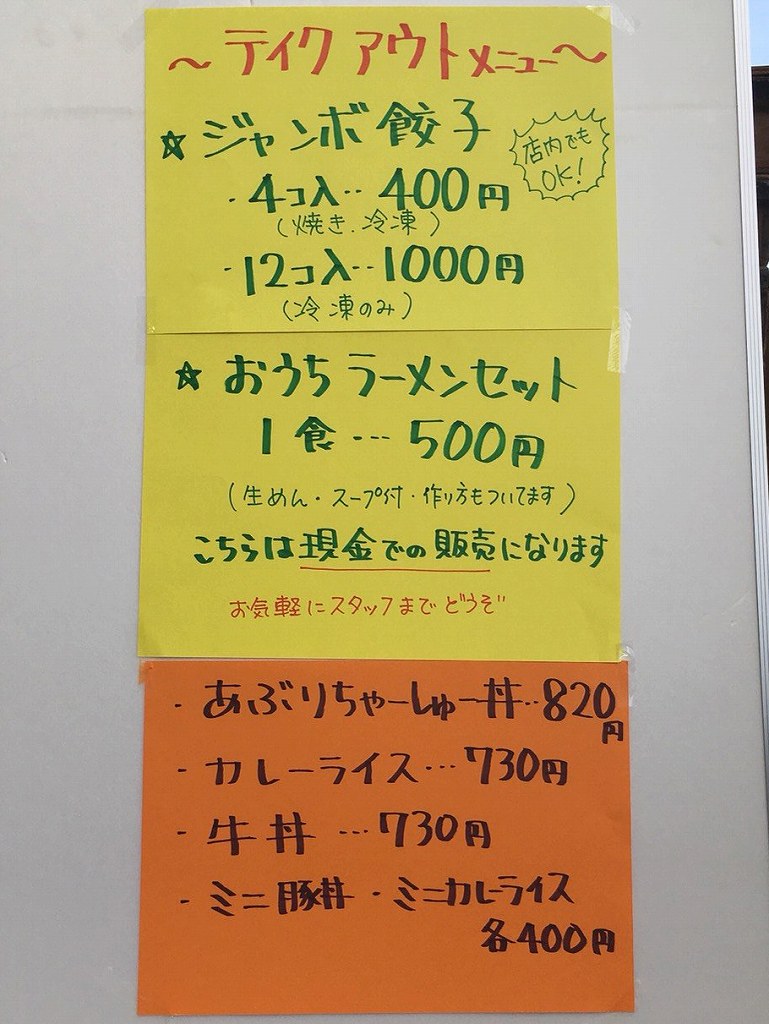 ～テイクアウトメニュー～
☆ジャンボ餃子
店内でも
OK!
・4コ入‥400円
(焼き.冷凍)
・12コ入‥1000円
(冷凍のみ)
☆おうちラーメンセット
1食…500円
(生めん・スープ付・作り方もついてます)
こちらは現金での販売になります
お気軽にスタッフまでどうぞ
・あぶりちゃーしゅー丼‥820円
・カレーライス…730円
・牛丼…730円
・ミニ豚丼・ミニカレーライス
各400円